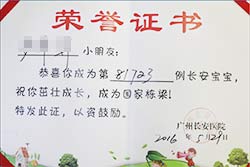 荣誉证书
小朋友:
恭喜你成为第81723例长安宝宝,
祝你茁壮成长,成为国家栋梁!
特发此证,以资鼓励。
广州长安医院
2016年5月29日